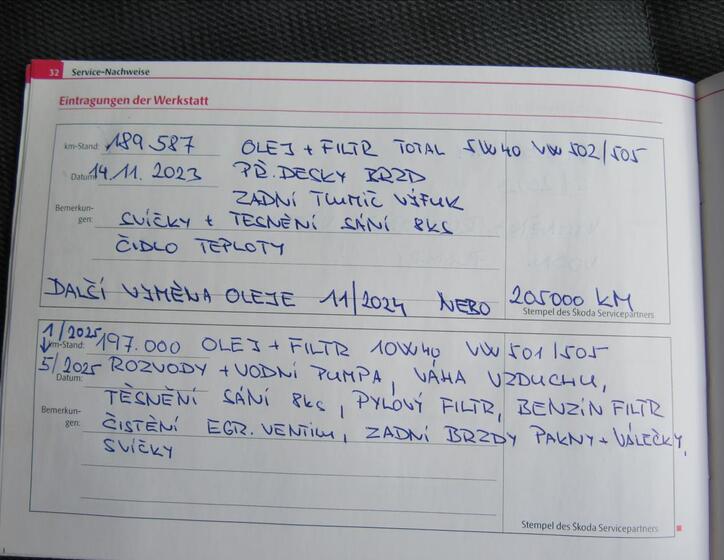 32 Service-Nachweise
Eintragungen der Werkstatt
km-Stand: 189.587 OLEJ + FILTR TOTAL 5W40 VW 502/505
Datum: 14.11. 2023 PŘ. DESKY BRZD
ZADNÍ TLUMIČ VÝFUK
Bemerkun-
gen: SVÍČKY + TESNĚNÍ SÁNÍ 8KS
ČIDLO TEPLOTY
DALŠÍ VÝMĚNA OLEJE 11/2024 NEBO 205000 KM
Stempel des Škoda Servicepartners
1/2025
km-Stand: 197.000 OLEJ + FILTR 10W40 VW 501/505
5/2025 ROZVODY + VODNÍ PUMPA, VÁHA VZDUCHU,
Datum:
TĚSNĚNÍ SÁNÍ 8KS, PYLOVÝ FILTR, BENZÍN FILTR
Bemerkun-
gen: ČISTĚNÍ EGR. VENTILU, ZADNÍ BRZDY PAKNY + VÁLEČKY,
SVÍČKY
Stempel des Škoda Servicepartners